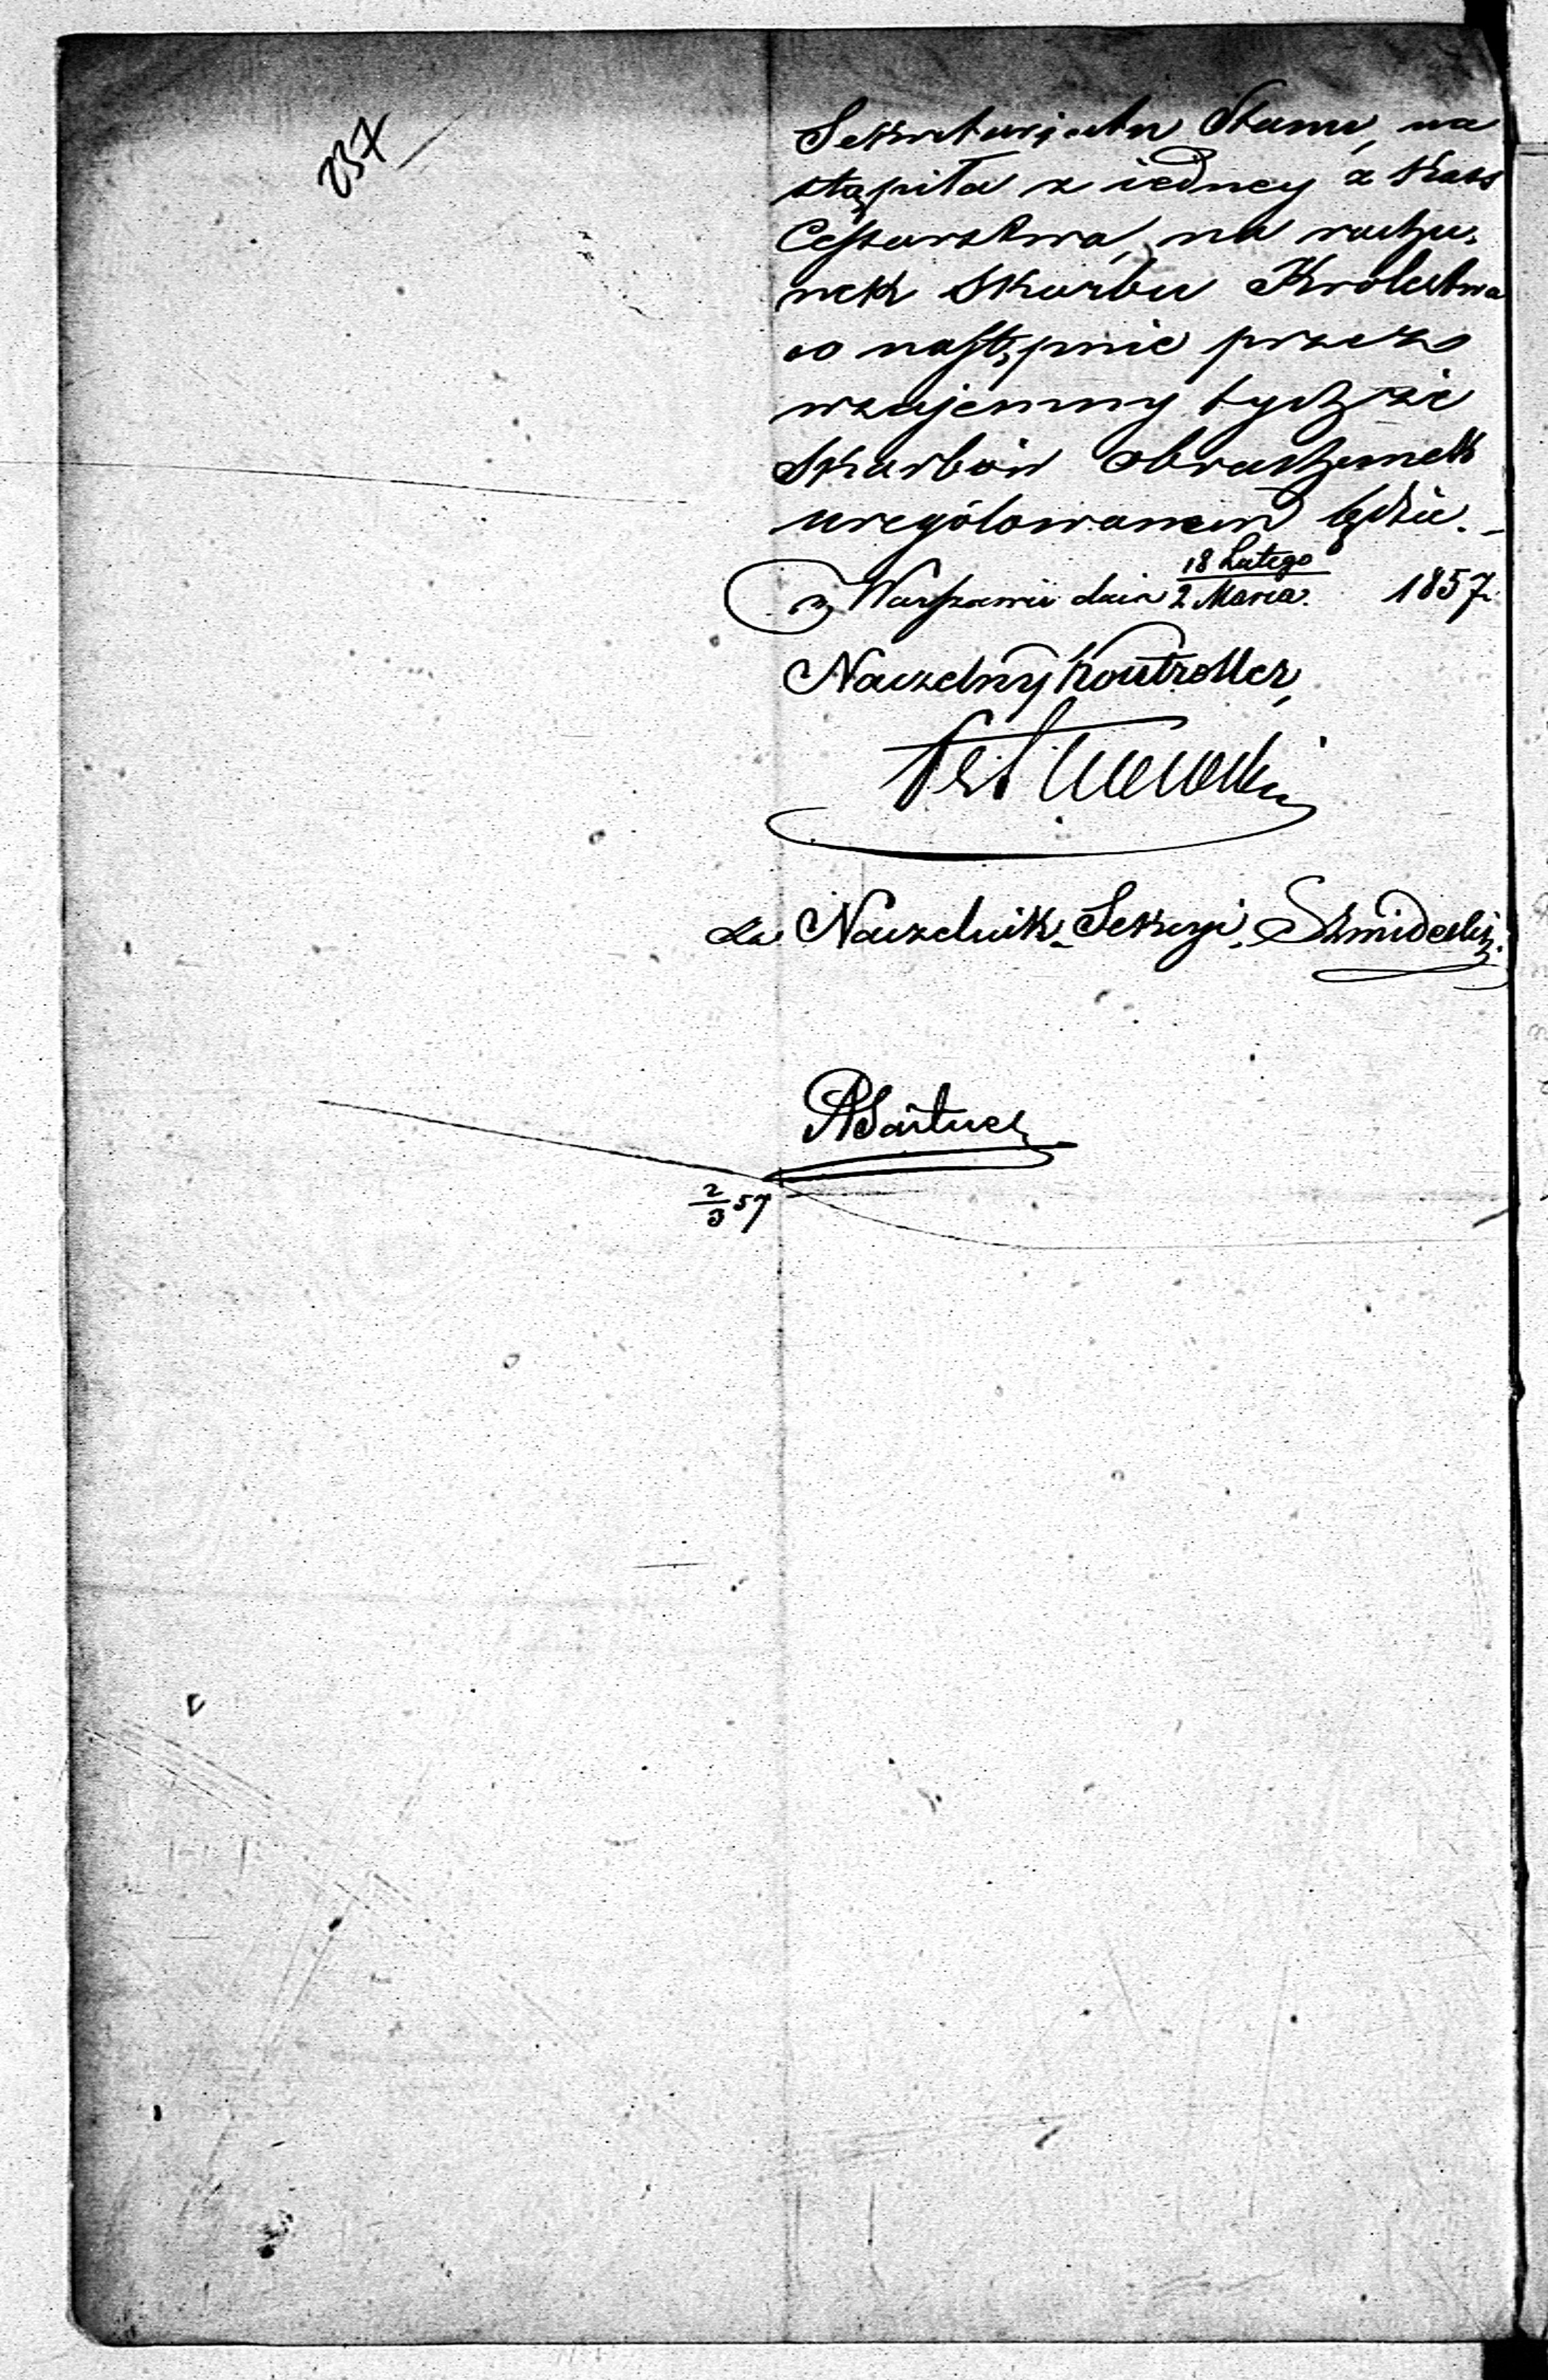 237
Sekretarjatu Stanu, na
stąpiła z iedney z Kass
Cessarstwa, na rachu:
nek Skarbu Królestwa
co nastepnie przez
wzajemny tychże
Skarbów obrachunek
urególowanem będzie. –
w Warszawie dnia 18 Lutego / 2 Marca 1857.
Naczelny Kontroller,
za Naczelnik Sekcyi,
2/3 57